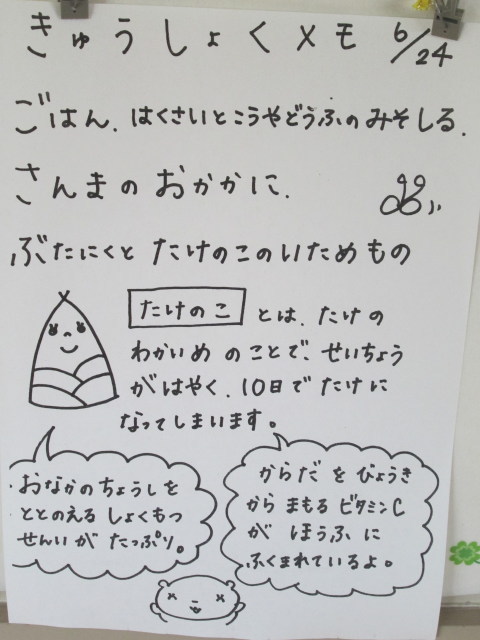 きゅうしょくメモ 6/24
ごはん、はくさいとこうやどうふのみそしる、
さんまのおかかに、
ぶたにくとたけのこのいためもの
たけのこ とは、たけの
わかいめのことで、せいちょう
がはやく、10日でたけに
なってしまいます。
おなかのちょうしを
ととのえるしょくもつ
せんいがたっぷり。
からだをびょうき
からまもるビタミンC
がほうふに
ふくまれているよ。